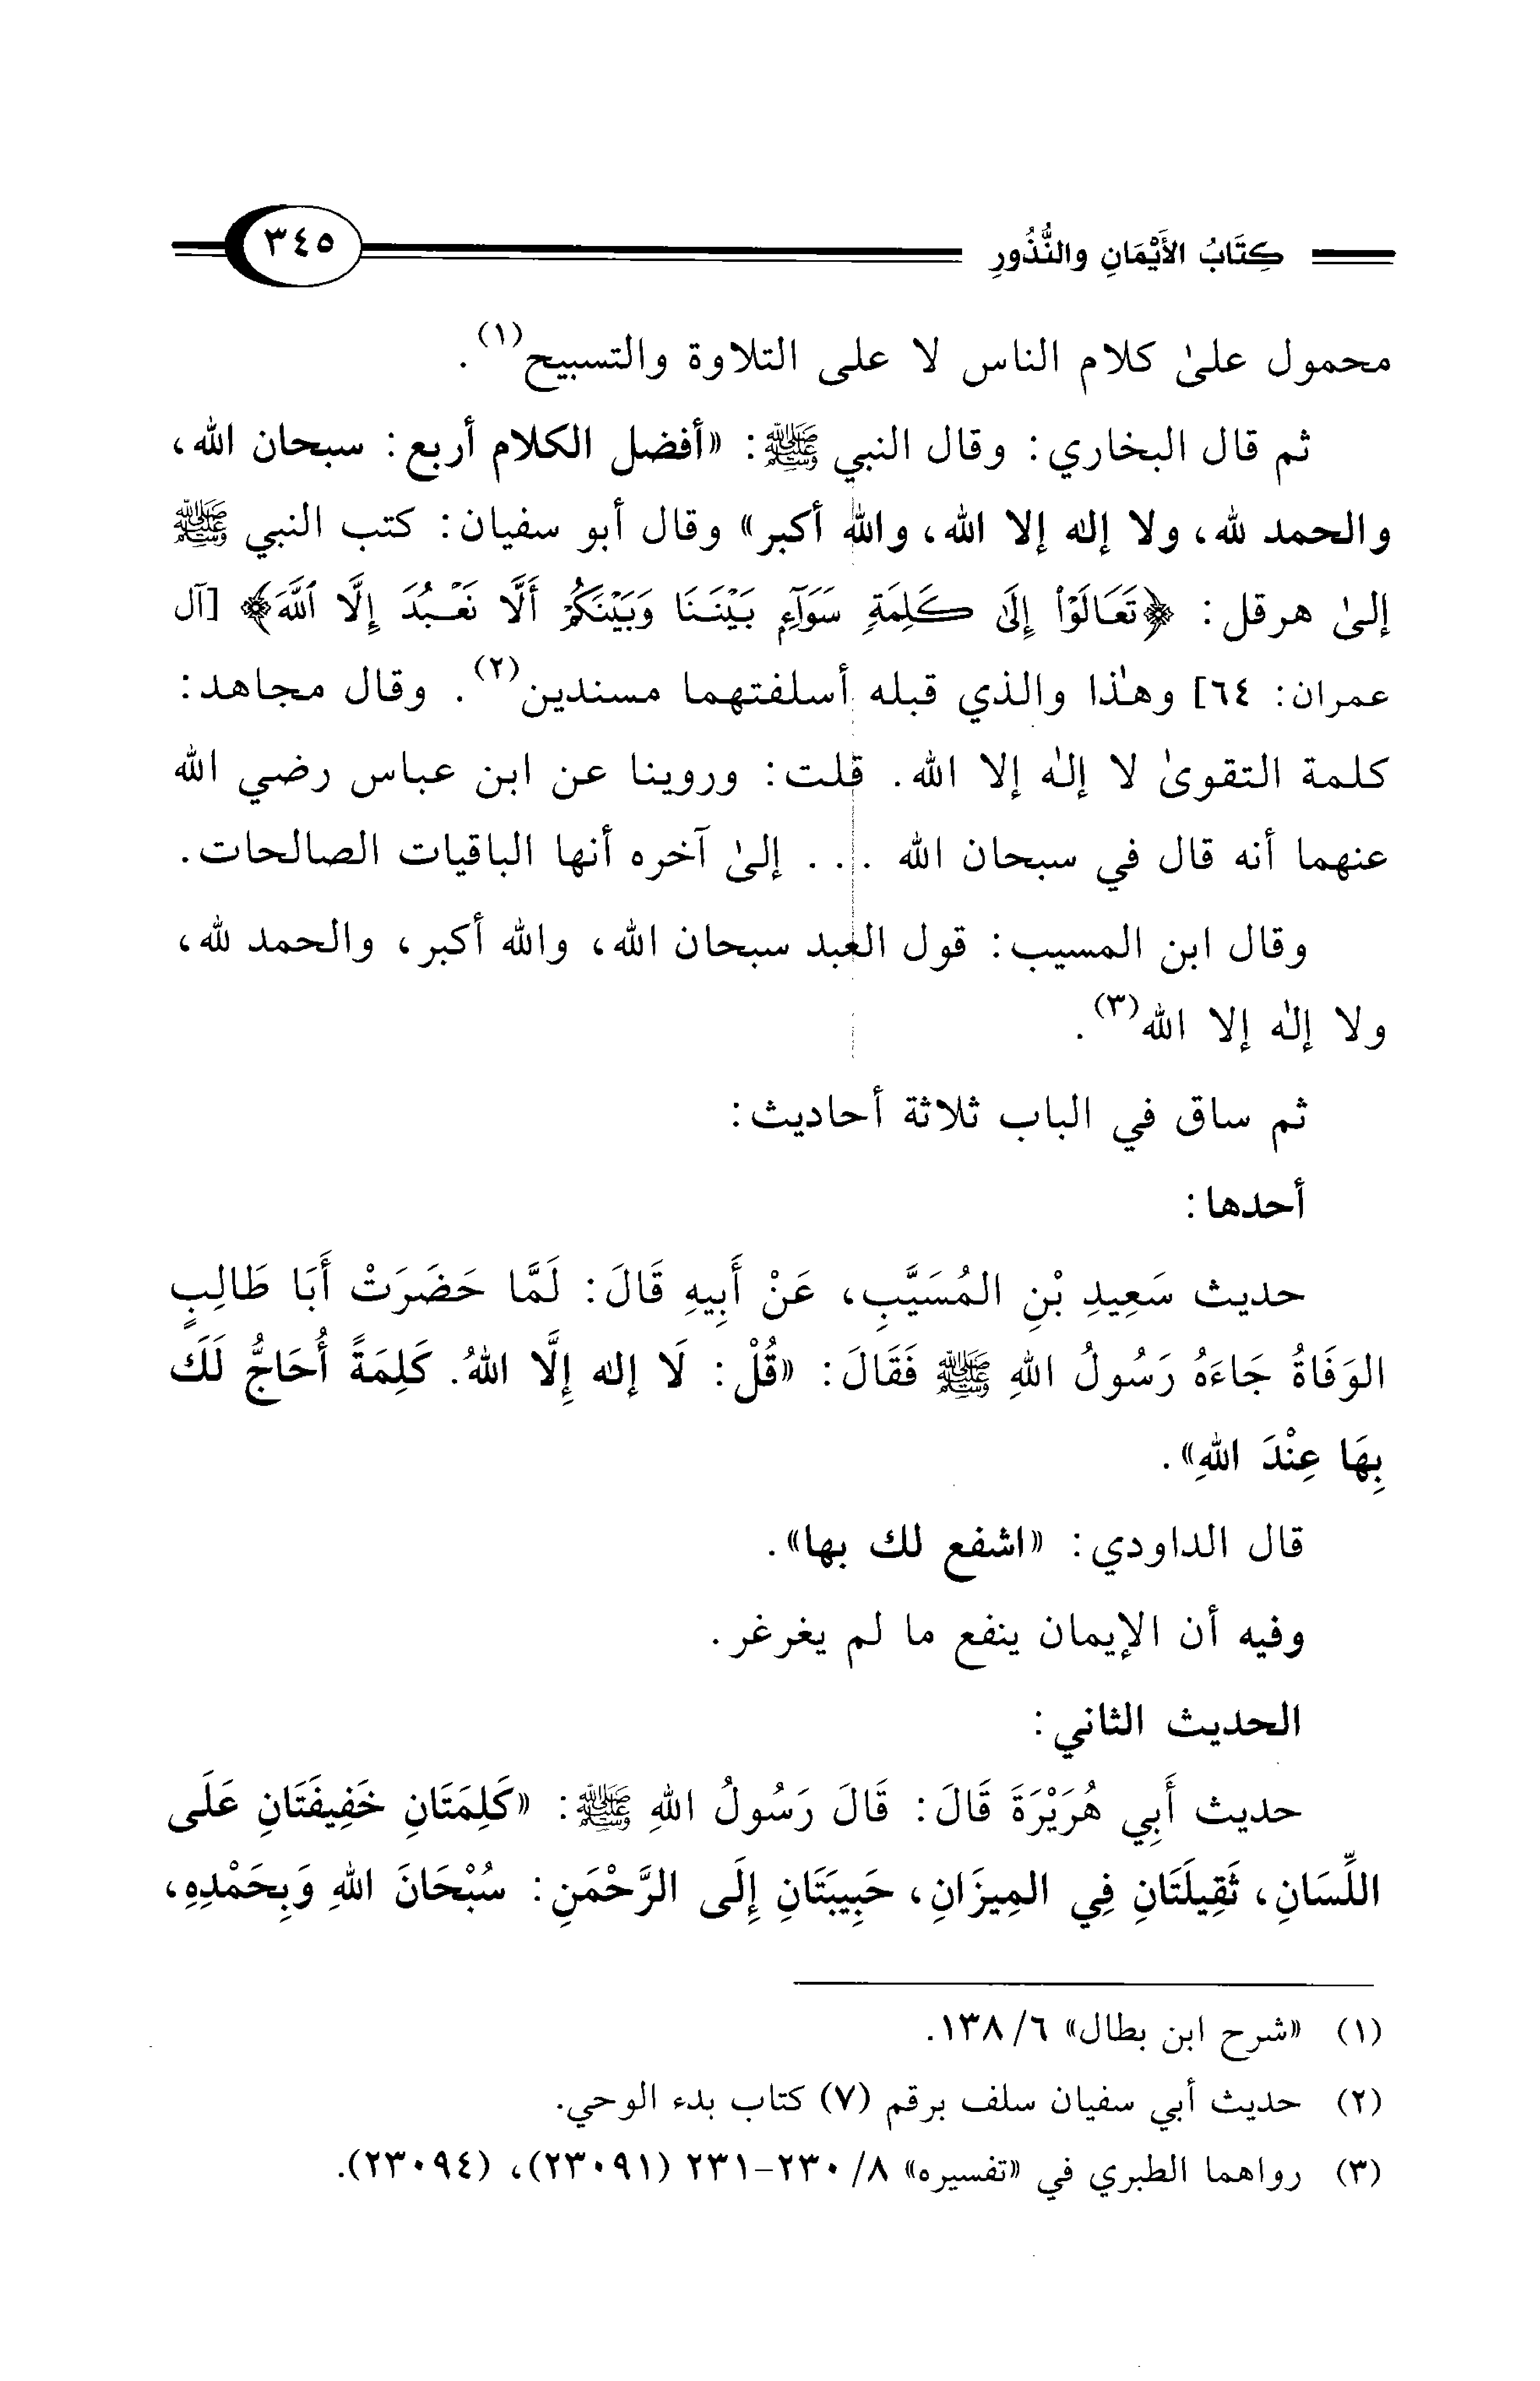 كِتَابُ الأَيْمَانِ والنُّذُورِ ٣٤٥
محمول علىٰ كلام الناس لا على التلاوة والتسبيح(١).
ثم قال البخاري: وقال النبي ﷺ: «أفضل الكلام أربع: سبحان الله،
والحمد لله، ولا إله إلا الله، والله أكبر» وقال أبو سفيان: كتب النبي ﷺ
إلىٰ هرقل: ﴿تَعَالَوْا۟ إِلَىٰ كَلِمَةٍ سَوَآءٍ بَيْنَنَا وَبَيْنَكُمْ أَلَّا نَعْبُدَ إِلَّا ٱللَّهَ﴾ [آل
عمران: ٦٤] وهٰذا والذي قبله أسلفتهما مسندين(٢). وقال مجاهد:
كلمة التقوىٰ لا إلٰه إلا الله. قلت: وروينا عن ابن عباس رضي الله
عنهما أنه قال في سبحان الله ... إلىٰ آخره أنها الباقيات الصالحات.
وقال ابن المسيب: قول العبد سبحان الله، والله أكبر، والحمد لله،
ولا إلٰه إلا الله(٣).
ثم ساق في الباب ثلاثة أحاديث:
أحدها:
حديث سَعِيدِ بْنِ المُسَيَّبِ، عَنْ أَبِيهِ قَالَ: لَمَّا حَضَرَتْ أَبَا طَالِبٍ
الوَفَاةُ جَاءَهُ رَسُولُ اللهِ ﷺ فَقَالَ: «قُلْ: لَا إله إِلَّا اللهُ. كَلِمَةً أُحَاجُّ لَكَ
بِهَا عِنْدَ اللهِ».
قال الداودي: «اشفع لك بها».
وفيه أن الإيمان ينفع ما لم يغرغر.
الحديث الثاني:
حديث أَبِي هُرَيْرَةَ قَالَ: قَالَ رَسُولُ اللهِ ﷺ: «كَلِمَتَانِ خَفِيفَتَانِ عَلَى
اللِّسَانِ، ثَقِيلَتَانِ فِي المِيزَانِ، حَبِيبَتَانِ إِلَى الرَّحْمَنِ: سُبْحَانَ اللهِ وَبِحَمْدِهِ،
(١) «شرح ابن بطال» ٦/ ١٣٨.
(٢) حديث أبي سفيان سلف برقم (٧) كتاب بدء الوحي.
(٣) رواهما الطبري في «تفسيره» ٨/ ٢٣٠-٢٣١ (٢٣٠٩١)، (٢٣٠٩٤).